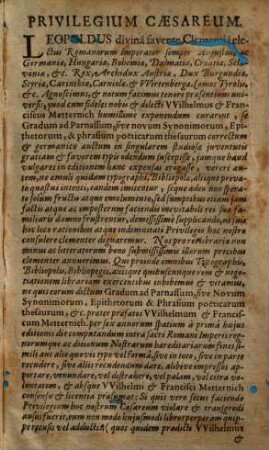 PRIVILEGIUM CÆSAREUM.
LEOPOLDUS divinâ favente Clementiâ ele-
ctus Romanorum Imperator semper Augustus, ac
Germaniæ, Hungariæ, Bohemiæ, Dalmatiæ, Croatiæ, Scla-
voniæ, &c. Rex, Archidux Austriæ, Dux Burgundiæ,
Styriæ, Carinthiæ, Carniolæ, & VVirtenbergæ, Comes Tyrolis,
&c. Agnoscimus, & notum facimus tenore præsentium uni-
versis, quod cum fideles nobis & dilecti VVilhelmus & Fran-
ciscus Metternich humillimè exponendum curarint, se
Gradum ad Parnassum, sive novum Synonimorum, Epi-
thetorum, & phrasium poeticarum thesaurum correctum
& germanico auctum in singularem studiosæ juventutis
gratiam & favorem typi udendum suscepisse, jamque haud
vulgares in editionem hanc expensas erogasse, vereri
autem, ne æmuli quidam typographi, Bibliopolæ, aliique
quæstus intenti, eandem imitentur, seque adeo non spera-
to solum fructu atque emolumento, sed sumptibus etiam jam
factis atque ac impostorum faciendis inevitabili rei suæ fa-
miliaris damno frustrentur, demississimè supplicando, ut sua
hoc loco rationibus atque indemnitati Privilegio hoc nostro
consulere clementer dignaremur. Nos pro re literaria non
minus ac literatorum bono submississimis illorum precibus
clementer annuimus. Qui propter omnibus Typographis,
Bibliopolis, Bibliopegis, aliisque quibuscunque rem & nego-
tiationem librariam exercentibus inhibemus & vetamus,
ne quis eorum dictum Gradum ad Parnassum, sive Novum
Synonimorum, Epithetorum & Phrasium poeticarum
thesaurum, &c. præter præfatos VVilhelmum & Francis-
cum Metternich, per sex annorum spatium à primâ hujus
editionis die computandum intra sacri Romani Imperii re-
gnorumque ac ditionum Nostrarum hæreditariarum fines si-
mili aut alio quovis typo vel formâ, sive in toto, sive in parte
recudere, sive alii recudendum dare, alibive impressos ap-
portare, venundare, vel distrahere, vel palam, vel extra occu-
luntatem, & absque VVilhelmi & Francisci Metternich
consensu & licentia præsumat: Si quis verò secus faciendo
Privilegium hoc nostrum Cæsareum violare & transgredi
ausus fuerit, eum non modo hujusmodi libros perperam quip-
pe recusos vel adductos (quos quidem prædicti VVilhelmus
&